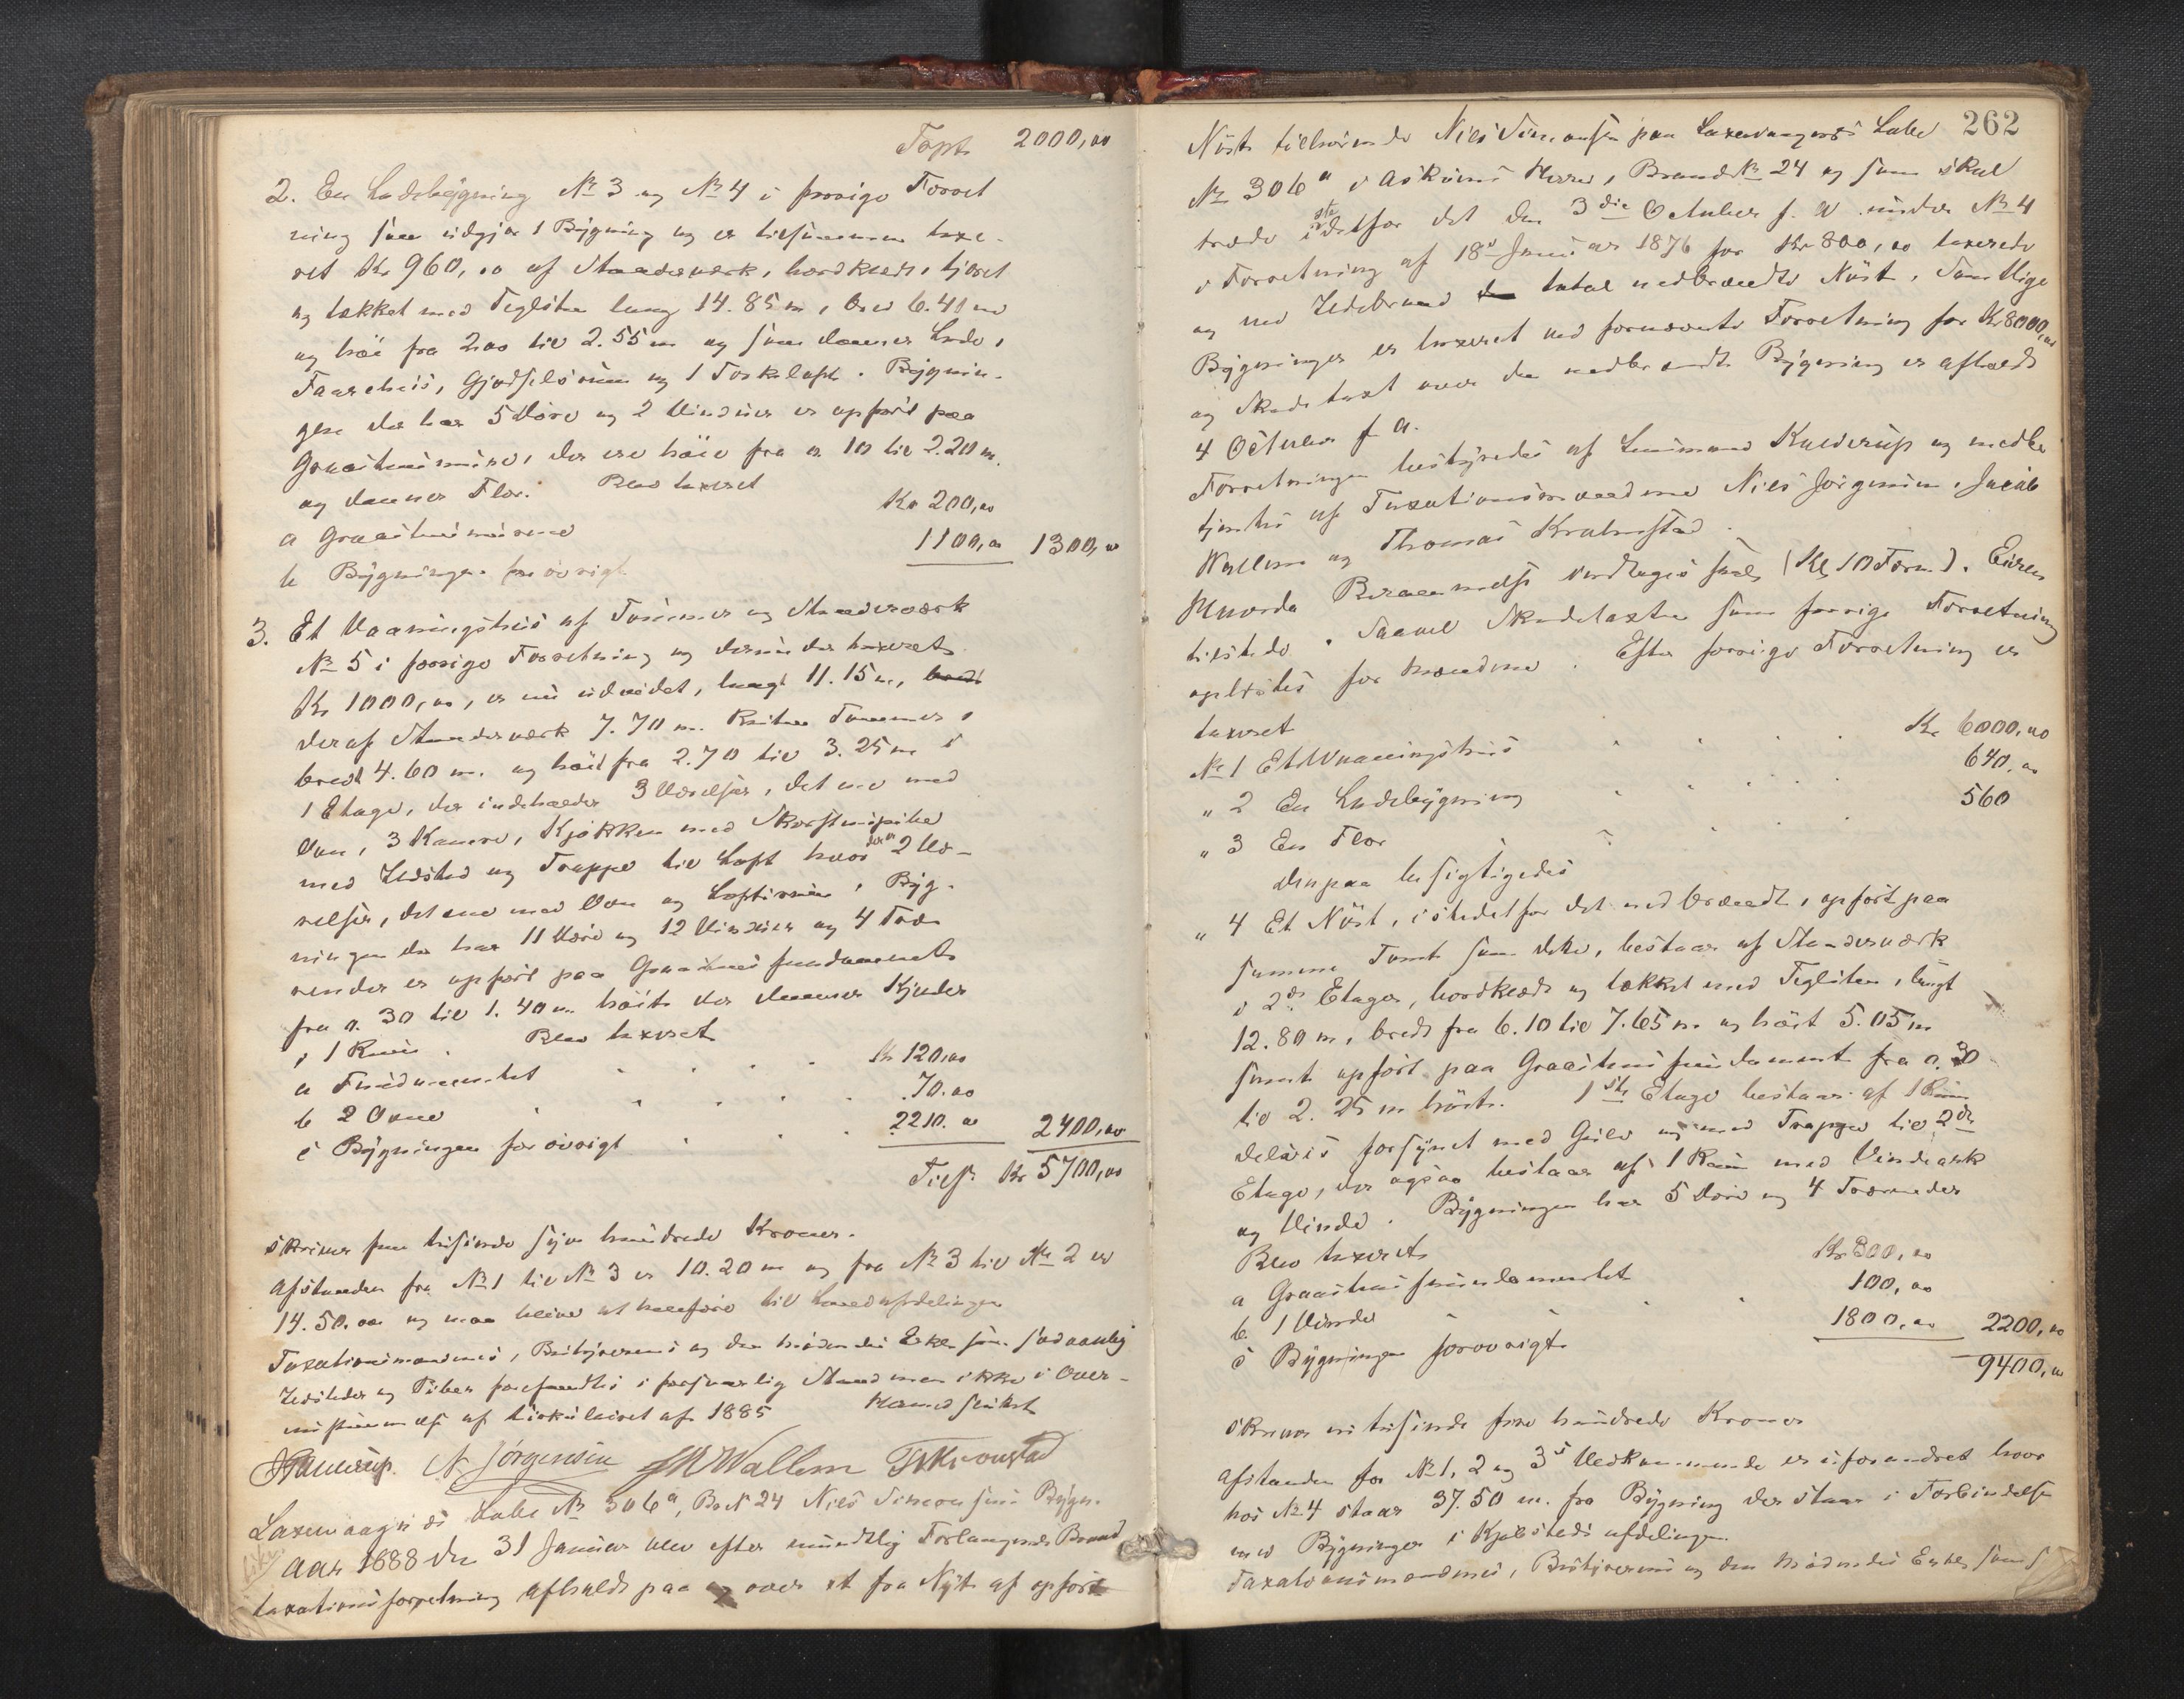 Transpt. 2000,00
2. En Ladebygning No 3 og No 4 i forrige Forret
ning som udgjør 1 Bygning og er tilsammen taxe-
ret Kr 960,00 af Standerværk, bordklædt, tjæret
og tækket med Teglsten lang 14.85 m, bred 6.40 m
og høi fra 2.00 til 2.55 m og som danner Lade,
Faarehuis, Gjødselsrum og 1 Torkeloft. Bygnin-
gen der har 5 Døre og 2 Vinduer er opført paa
Graastensmure, der ere høie fra 0.10 til 2.20 m.
og danner Flor. Blev taxeret
a Graastensmurene Kr 200,00
b Bygningen forøvrigt 1100,00 1300,00
3. Et Vaaningshuis af Tømmer og Standerværk
No 5 i forrige Forretning og derunder taxeret
Kr 1000,00, er nu udvidet, langt 11.15 m,
deraf Standerværk 7.70 m. Resten Tømmer,
bredt 4.60 m. og høit fra 2.70 til 3.25 m i
1 Etage, der indeholder 3 Værelser, det ene med
Ovn, 3 Kamre, Kjøkken med Skorstenspibe
med Ildsted og Trappe til Loft hvor der er 2 Væ-
relser, det ene med Ovn og Loftsrum, Byg-
ningen der har 11 Døre og 12 Vinduer og 4 Træ-
render er opført paa Graastensfundament
fra 0.30 til 1.40 m høit der danner Kjelder
i 1 Rum. Blev taxeret
a Fundamentet Kr 120,00
b 2 Ovne 70.00
c Bygningen forøvrigt 2210.00 2400,00
Tils. Kr 5700,00
skriver fem tusinde syv hundrede Kroner.
Afstanden fra No 1 til No 3 er 10.20 m og fra No 3 til No 2 er
14.50. og maa blive at henføre til Landafdelingen
Taxationsmændenes, Bestyrerens og den Eier som saadanlig
Ildsteder og Piber forefandtes i forsvarlig Stand men ikke i Over-
enstemmelse af Cirkulæret af 1885
N. Jørgensen JMWallem T Kronstad
Laxevaagneset Labr No 306a, Br No 24 Niels Simonsens Bygn.
Aar 1888 den 31 Januar blev efter mundtlig Forlangende Brand
taxationsforretning afholdt paa og over et fra Nyt af opført
262
Nøst tilhørende Niels Simonsen paa Laxevaagnes Labr
No 306a i Askøens Herred, Brand No 24 og som skal
træde istedetfor det den 3die October f. A. under No 4
i Forretning af 18 Januar 1876 for Kr 800,00 taxerede
og ved Ildebrand total nedbrændte Nøst. Samtlige
Bygninger er taxeret ved fornævnte Forretning for Kr 8000,00
og Skadetaxt over den nedbrændte Bygning er afholdt
4 October f. A.
Forretningen bestyredes af Lensmand og medbe
tjentes af Taxationsmændene Niels Jørgensen, Jacob
Wallem og Thomas Kronstad.
(Kl 10 Form). Eieren
tilstede. Saavel Skadetaxten som forrige Forretning
oplæstes for Mændene. Efter forrige Forretning er
taxeret
No 1 Et Vaaningshuis Kr 6000,00
" 2 En Ladebygning 640,00
" 3 En Flor 560
Derpaa besigtigedes
" 4 Et Nøst, istedetfor det nedbrændte, opført paa
samme Tomt som dette, bestaar af Standerværk
i 2de Etager, bordklædt og tækket med Teglsten, langt
12.80 m, bredt fra 6.10 til 7.65 m og høit 5.05 m
samt opført paa Graastensfundament fra 0.30
til 2.25 m høit. 1ste Etage bestaar af 1 Rum
delvis forsynet med Gulv og med Trappe til 2den
Etage, der ogsaa bestaar af 1 Rum med Vindeark
og Vinde. Bygningen har 5 Døre og 4 Trærender
Blev taxeret
a Graastensfundamentet Kr 300,00
b. 1 Vinde 100,00
c Bygningen forøvrigt 1800,00 2200,00
9400,00
skriver ni tusinde fire hundrede Kroner
Afstanden for No 1, 2 og 3s Vedkommende er uforandret hvor
hos No 4 staar 37.50 m. fra Bygning der staar i Forbindelse
med Bygninger i Kjøbstads afdelingen.
Taxationsmændenes, Bestyrerens og den Eier som